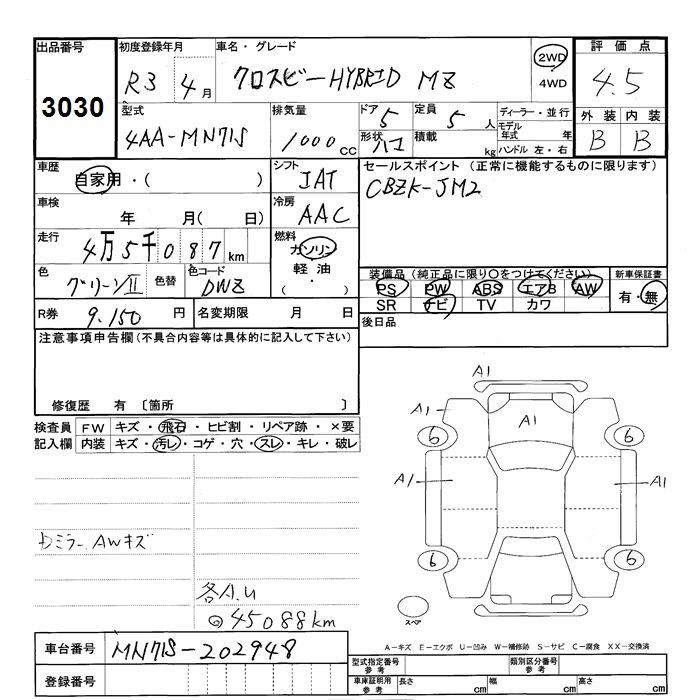 出品番号 初度登録年月 車名・グレード 評価点
3030 R3 4月 クロスビーHYBRID MZ 2WD 4WD 4.5
型式 排気量 ドア 定員 ディーラー・並行 外装 内装
4AA-MN71S 1000cc 5 5人 モデル年式 年 B B
形状 ハコ 積載 kg ハンドル 左・右
車歴 シフト セールスポイント (正常に機能するものに限ります)
自家用・( ) IAT CBZK-JM2
車検 年 月(日) 冷房 AAC
走行 4万5千087km 燃料 ガソリン
軽油
( ・ )
色 グリーンII 色替 色コード DWZ
装備品 (純正品に限り○をつけてください) 新車保証書
PS PW ABS エアB AW 有・無
SR ナビ TV カワ
R券 9.150円 名変期限 月 日 後日品
注意事項申告欄(不具合内容等は具体的に記入して下さい)
修復歴 有 〔箇所 〕
検査員 FW キズ・飛石・ヒビ割・リペア跡・×要
記入欄 内装 キズ・汚レ・コゲ・穴・スレ・キレ・破レ
A1
A1 A1
6 6
A1 A1
6 6
スペア
カミラー.AWキズ
各A.U
◎45088km
A-キズ E-エクボ U-凹み W-補修跡 S-サビ C-腐食 XX-交換済
車台番号 MN71S-202948
登録番号
型式指定番号 参考 類別区分番号 参考
車庫証明用 参考 長さ cm 幅 cm 高さ cm